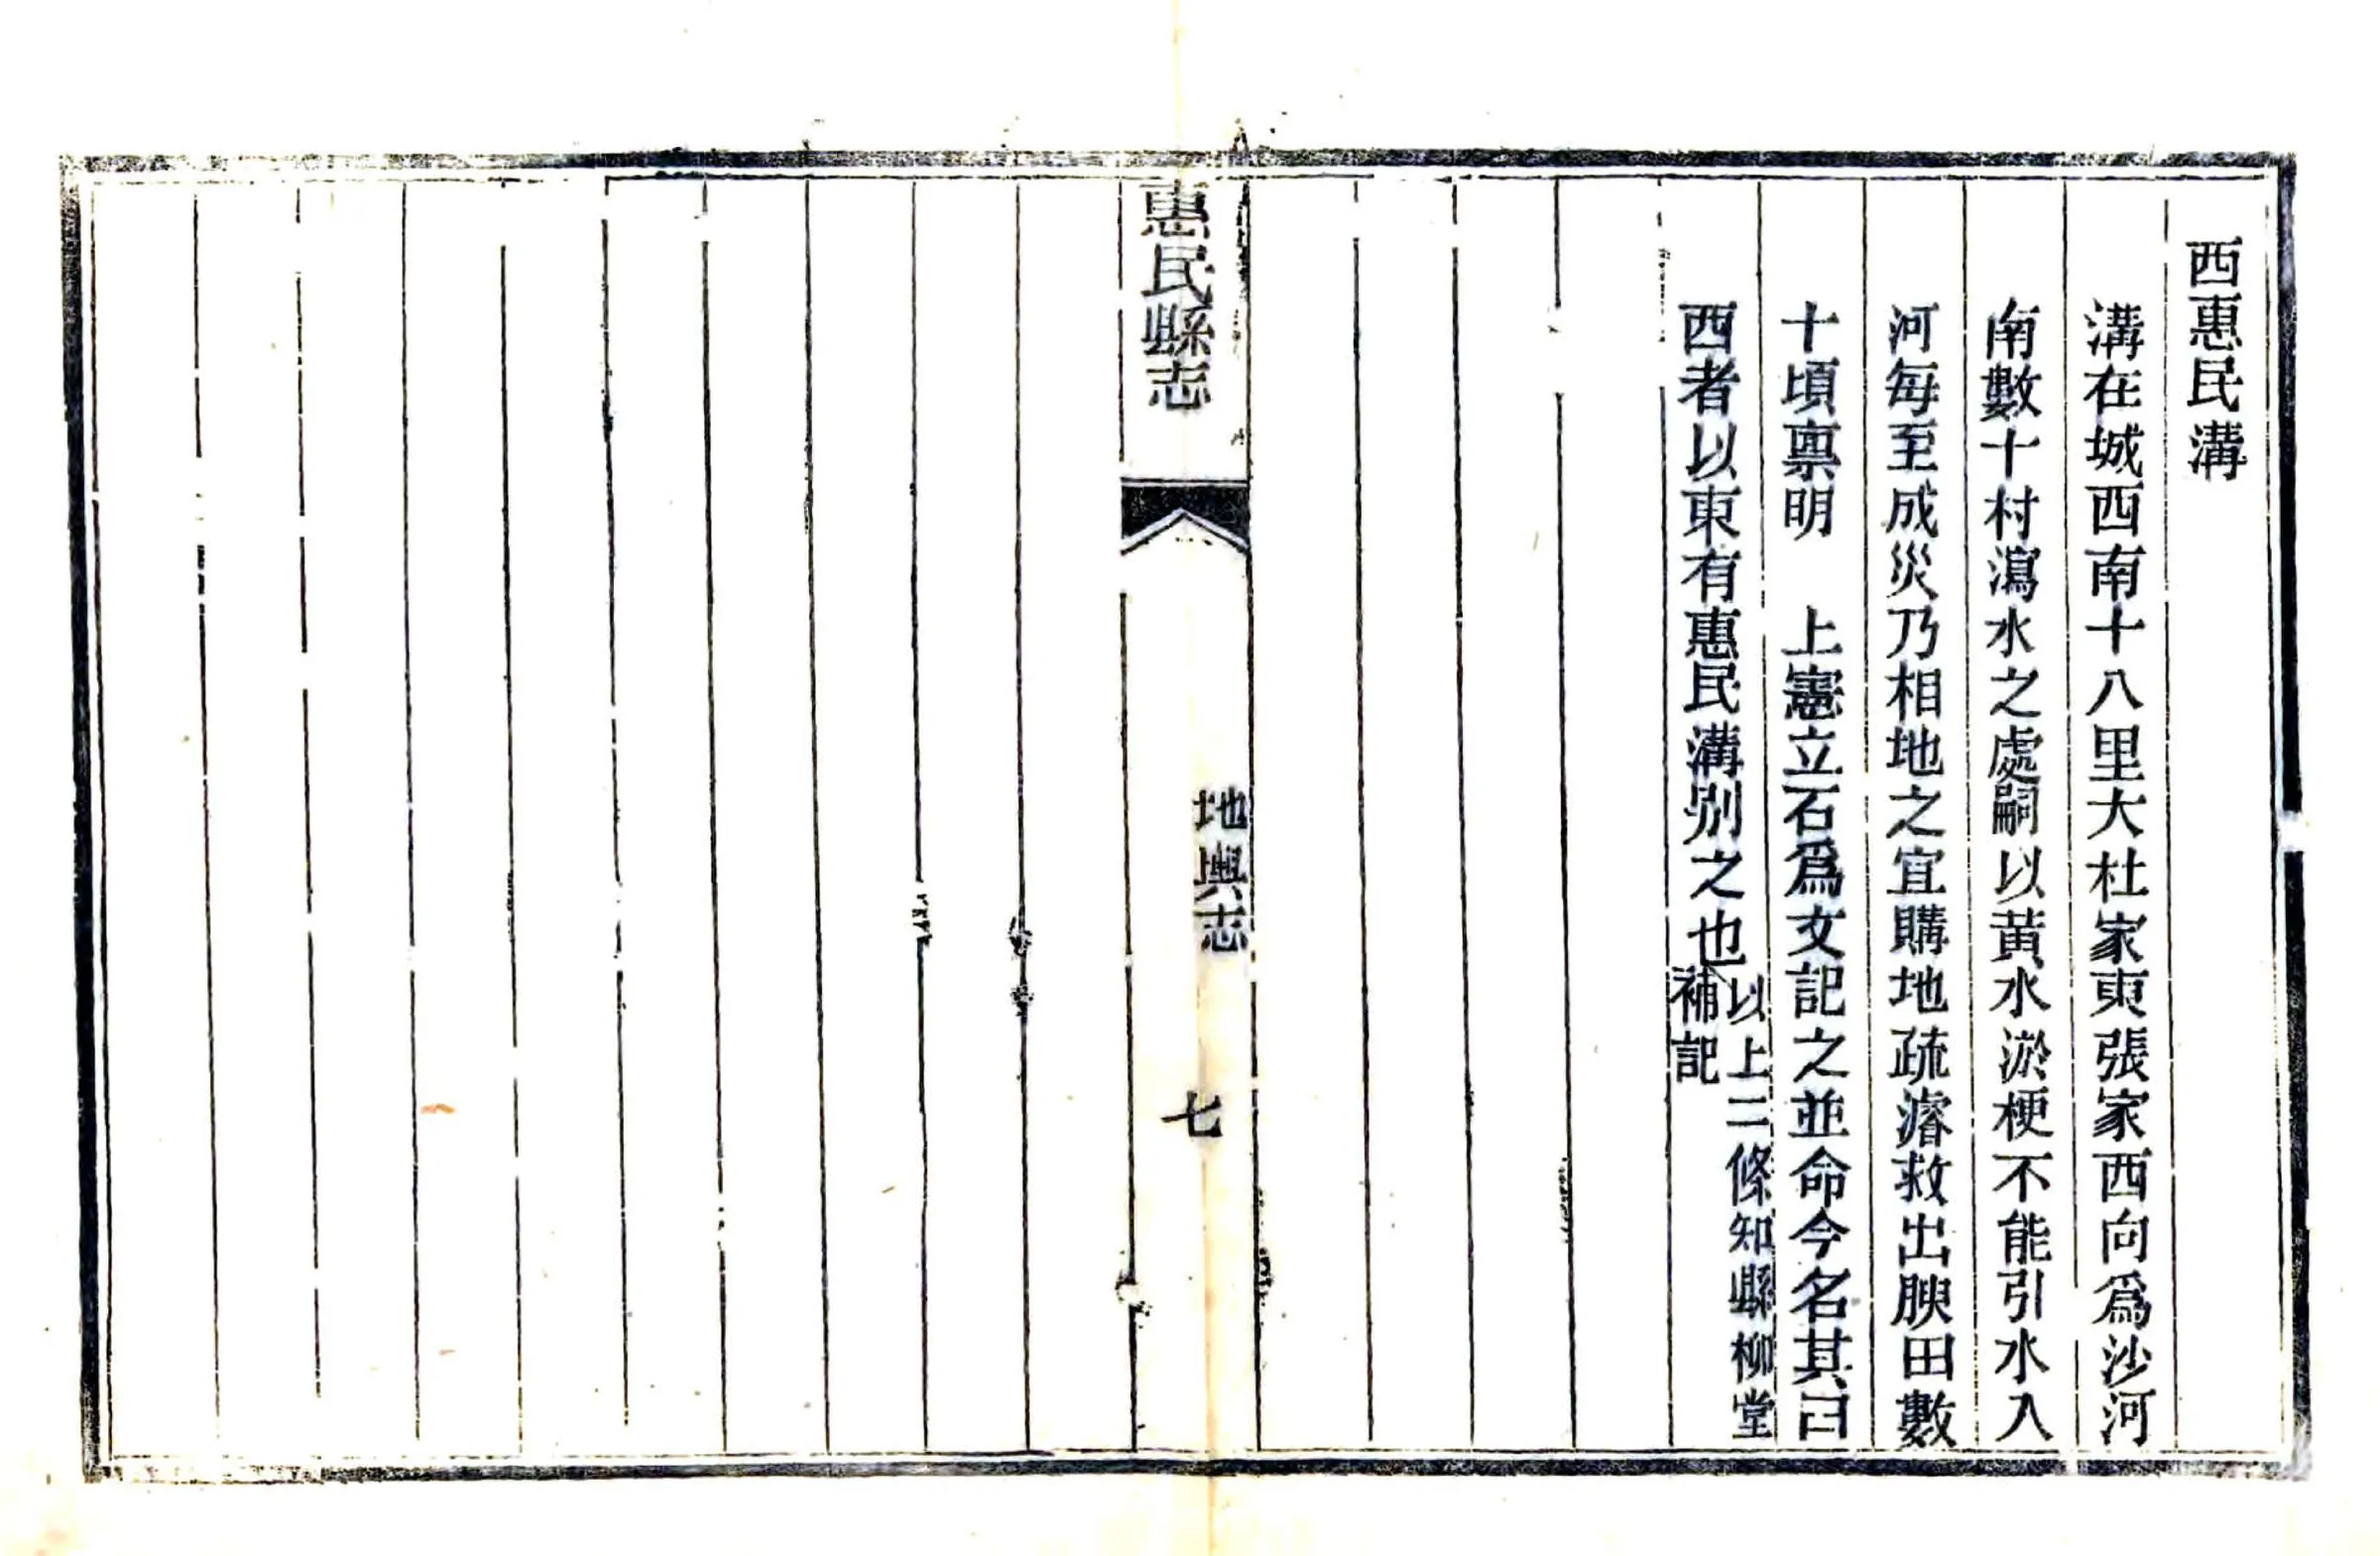 西惠民溝
溝在城西南十八里大杜家東張家西向爲沙河
南數十村瀉水之處嗣以黃水淤梗不能引水入
河每至成災乃相地之宜購地疏濬救出腴田數
十頃禀明　上憲立石爲文記之並命今名其曰
西者以東有惠民溝別之也
以上二條知縣柳堂
補記
惠民縣志
地輿志
七